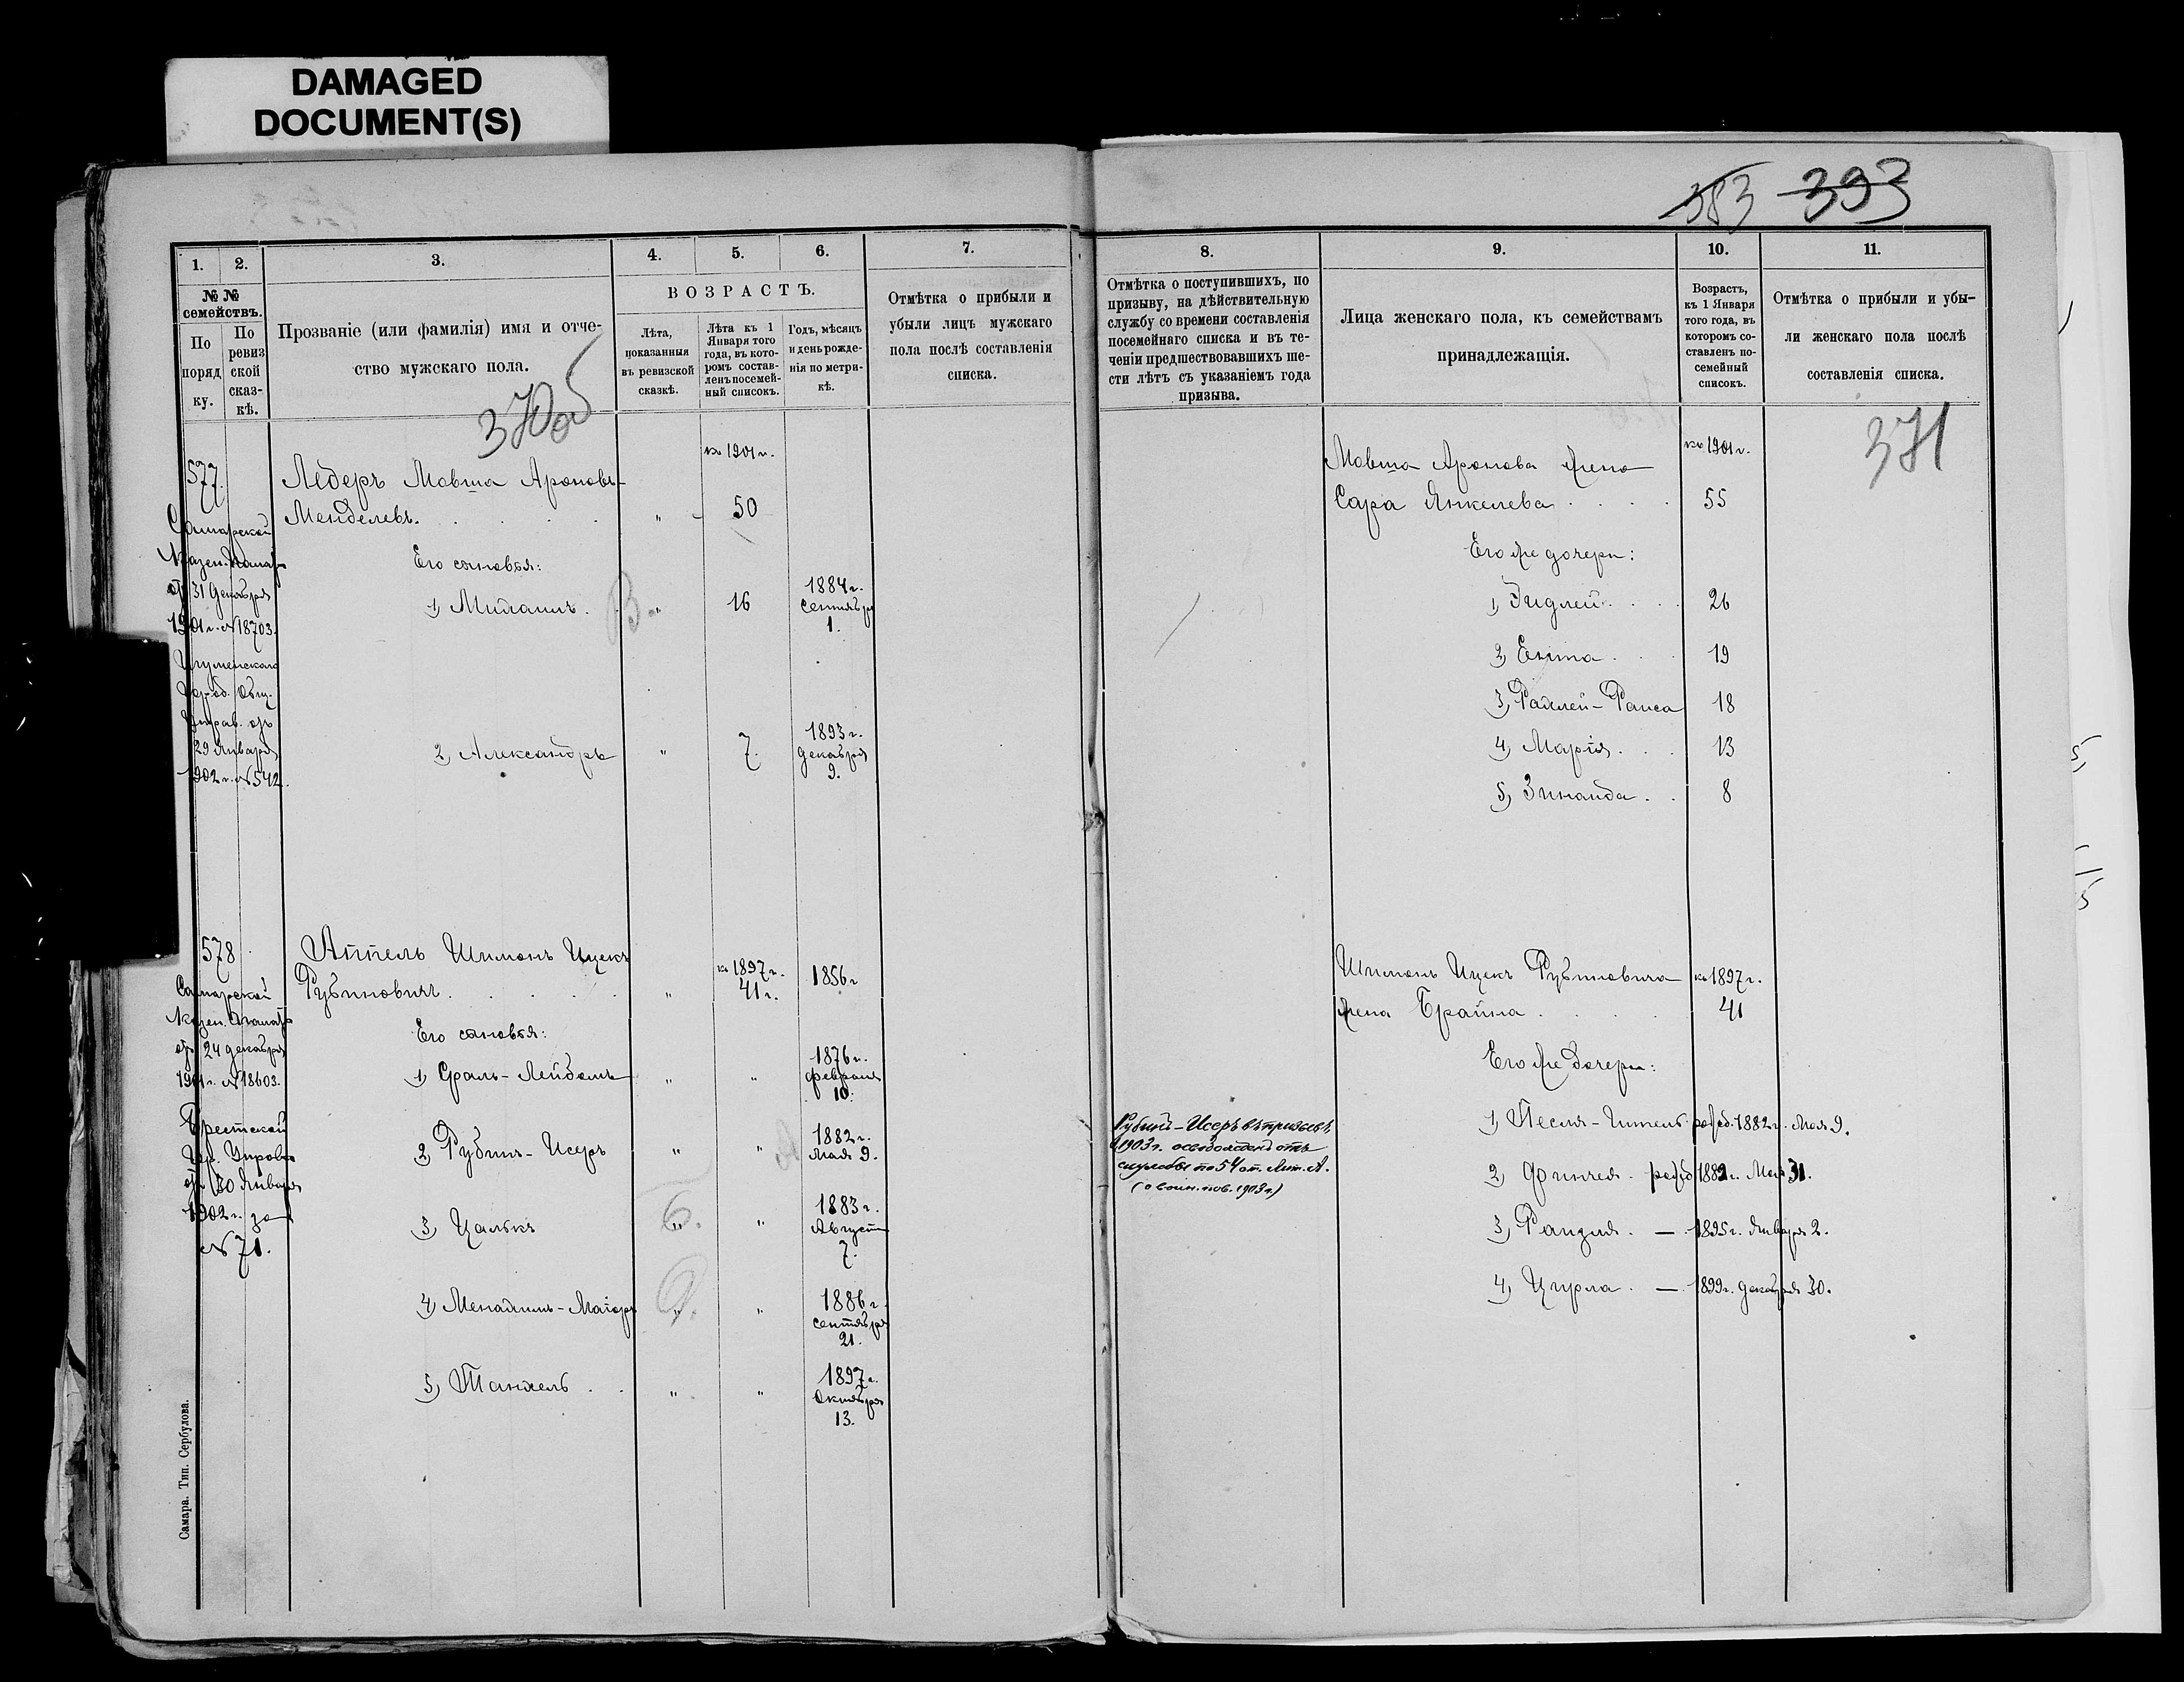 DAMAGED
DOCUMENT(S)
383 393
1. 2. 3. 4. 5. 6. 7.
№ №
семействъ.
По
поряд
ку.
По
ревиз
ской
сказ-
кѣ.
Прозваніе (или фамилія) имя и отче-
ство мужскаго пола.
ВОЗРАСТЪ.
Лѣта,
показанныя
въ ревизской
сказкѣ.
Лѣта къ 1
Января того
года, въ кото-
ромъ состав-
ленъ посемей-
ный списокъ.
Годъ, мѣсяцъ
и день рожде-
нія по метри-
кѣ.
Отмѣтка о прибыли и
убыли лицъ мужскаго
пола послѣ составленія
списка.
370об
577.
Самарской
Казен. Палаты
от 31 Декабря
1901 г. № 18703.
Игуменскаго
Гор-об. Общ.
Управ. от
29 Января
1902 г. № 542.
къ 1901 г.
Ледеръ Мовша Ароновъ-
Менделевъ. " 50
Его сыновья:
1) " 16 1884 г.
Сентября
1.
2) Александръ " 7. 1893 г.
Декабря
9.
578
Самарской
Казен. Палаты
от 24 декабря
1901 г. № 18603.
Брестской
Гор. Управы
от 30 Января
1902 г. за
№ 71.
Аппель Шимонъ Ицекъ
Рубиновичъ. " къ 1897 г. 41 г. 1856 г
Его сыновья:
1) Сроль-Лейбомъ " " 1876 г.
февраля
10.
2) Рубинъ-Исеръ " " 1882 г.
Мая 9.
3) Цалькъ " " 1883 г.
Августа
7.
4) Менахимъ-Маіоръ " " 1886 г.
Сентября
21.
5) Танхель " " 1897 г.
Октября
13.
Самара. Тип. Сербулова.
8. 9. 10. 11.
Отмѣтка о поступившихъ, по
призыву, на дѣйствительную
службу со времени составленія
посемейнаго списка и въ те-
ченіи предшествовавшихъ ше-
сти лѣтъ съ указаніемъ года
призыва.
Лица женскаго пола, къ семействамъ
принадлежащія.
Возрастъ,
къ 1 Января
того года, въ
которомъ со-
ставленъ по-
семейный
списокъ.
Отмѣтка о прибыли и убы-
ли женскаго пола послѣ
составленія списка.
371
Мовша Аронова жена къ 1901 г.
Сара Янкелева 55
Его же дочери:
1) 26
2) Ента 19
3) Рахлей-Раиса 18
4) Марія 13
5) Зинаида 8
Шимонъ Ицекъ Рубиновича къ 1897 г.
жена Брайна 41
Его же дочери:
1) Песля-Гитель родд. 1882 г. Мая 9.
2) Финчея родд 1889 г. Мая 31.
3) Рандля — 1895 г. Января 2.
4) Цирла — 1899 г. Декабря 30.
Рубинъ-Исеръ въ призывъ
1903 г. освобожденъ отъ
службы по 54 ст. Лит. А.
(о воин. пов. 1903 г.)